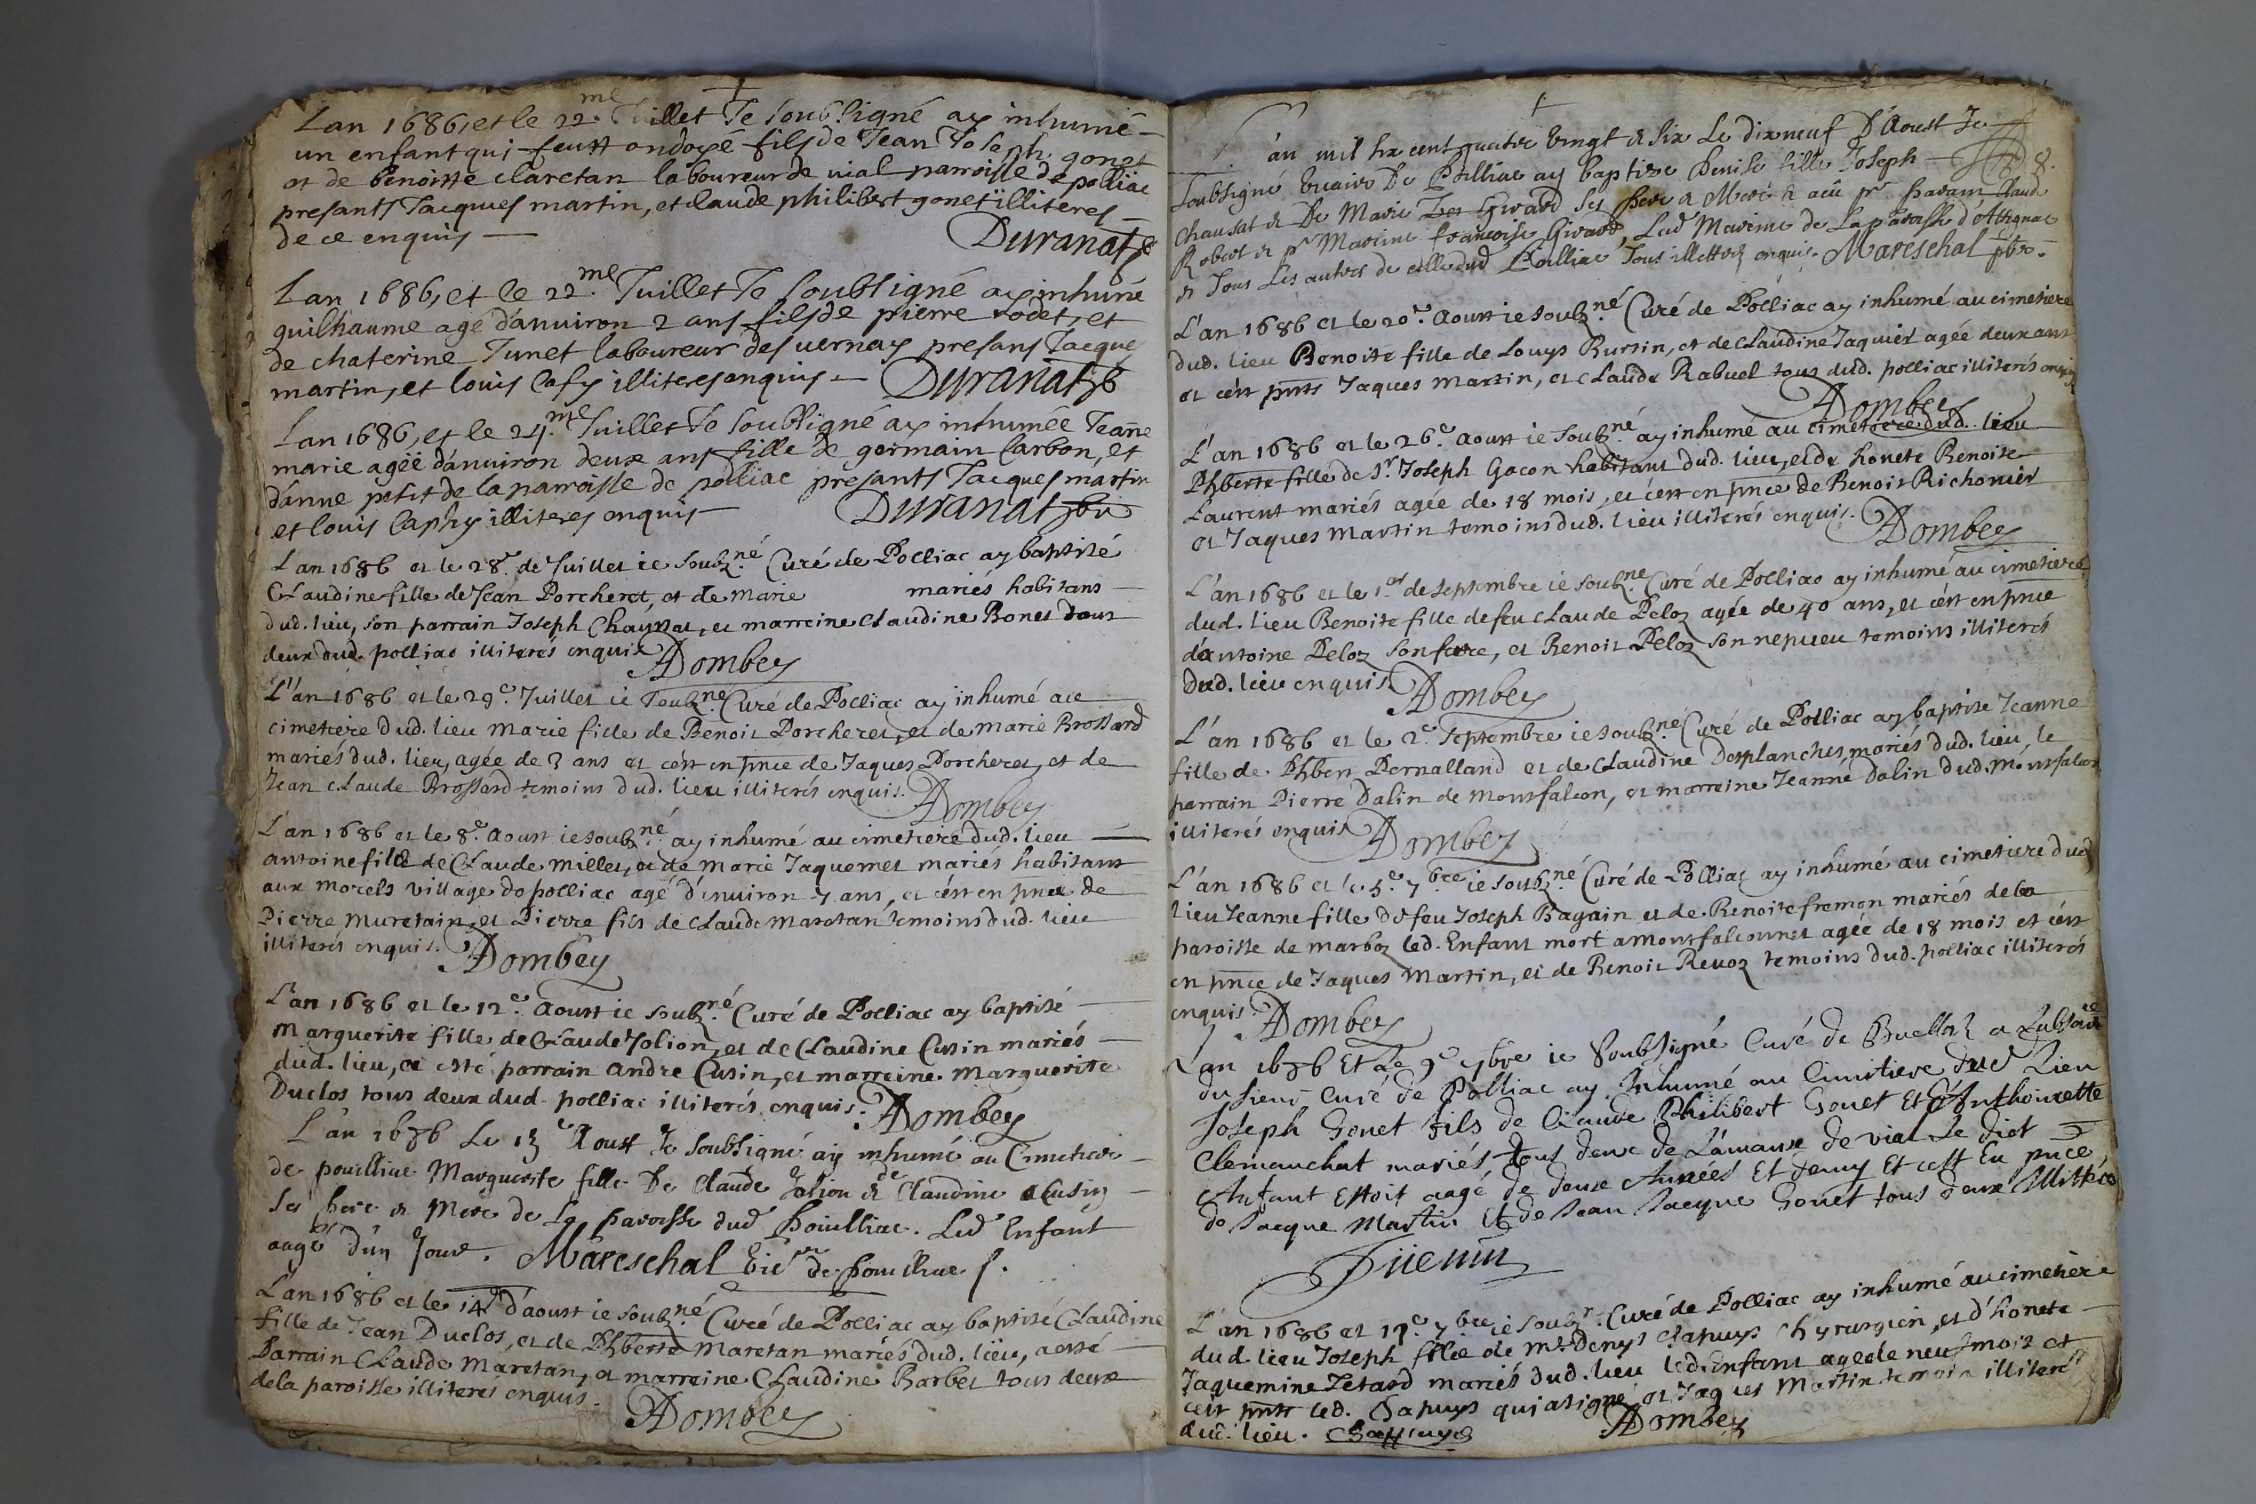 Lan 1686, et le 22.me Juillet Je soubsigné ay inhumé
un enfant qui feutt ondoyé fils de Jean Joseph gonet
et de benoitte claretan laboureur de uial parroisse de polliac
presants Jacques martin, et claude philibert gonet illiteres
de ce enquis
Duranat
Lan 1686, et le 22.me Juillet Je soubsigné ay inhumé
guilhaume agé d'anuiron 2 ans fils de pierre rodet, et
de chaterine Junet laboureur des uernay presans Jacque
martin, et louis Cafy illiteres enquis Duranat
Lan 1686, et le 24.me Juillet Je soubsigné ay inhumée Jeanne
marie agée d'anuiron deux ans fille de germain Carbon, et
d'anne petit de la parroisse de polliac presants Jacques martin
et louis Caphy illiteres enquis Duranat
L'an 1686 et le 28e. de Juillet ie soubz.né Curé de Polliac ay baptisé
Claudine fille de Jean Porcheret, et de marie mariés habitans
dud. lieu, son parrain Joseph Chaynat, et marreine claudine Bonet tous
deux dud. polliac illiterés enquis ADombey
L'an 1686 et le 29e Juillet ie soubz.né Curé de Polliac ay inhumé au
cimetiere dud. lieu marie fille de Benoit Porcheret, et de marie Brossard
mariés dud. lieu, agée de 3 ans et c'est en pnce de Jaques Porcheret, et de
Jean claude Brossard temoins dud. lieu illiterés enquis. ADombey
L'an 1686 et le 8e. aoust ie soubz.né ay inhumé au cimetiere dud. lieu
antoine fils de Claude millet, et de marie Jaquemet mariés habitans
aux morels village de polliac agé d'enuiron 7 ans, et c'est en pnce de
Pierre muretain, et Pierre fils de claude maretan temoins dud. lieu
illiterés enquis. ADombey
L'an 1686 et le 12e. aoust ie soubz.né Curé de Polliac ay baptisé
marguerite fille de Claude Jolion, et de Claudine Cusin mariés
dud. lieu, a esté parrain andre Cusin, et marreine marguerite
Duclos tous deux dud. polliac illiterés enquis. ADombey
L'an 1686 Le 13e Aoust Je soubsigné ay inhumé au Cimetiere
de pouilliac Marguerite fille De Claude Jolion & de Claudine Cusin
Ses pere & Mere de La paroisse dud pouilliac. Led Enfant
aagé d'un Jour. Mareschal Vic.re de pouilliac
L'an 1686 et le 14e d'aoust ie soubz.né Curé de Polliac ay baptisé Claudine
fille de Jean Duclos, et de Phberte maretan mariés dud. lieu, a esté
Parrain Claude maretan, et marreine Claudine Barbet tous deux
de la paroisse illiterés enquis.
ADombey
L'an mil six cent quatre vingt & six Le dixneuf D'Aoust Je
soubsigné Vicaire De Polliac ay baptise Denise fille Joseph
Chaussat & De Marie Girard ses pere & Mere & a eü pr parain Claude
Robert & pr Mareine francoise Girard, Lad Mareine de La paroisse d'Attignac
& Tous Les autres de celle dud Polliac Tous illettrez enquis. Mareschal pbr.
L'an 1686 et le 20e. aoust ie soubz.né Curé de Polliac ay inhumé au cimetiere
dud. lieu Benoite fille de Louys Burtin, et de claudine Jaquier agée deux ans
et c'est pnts Jaques martin, et claude Rabuel tous dud. polliac illiterés enquis
ADombey
L'an 1686 et le 26e. aoust ie soubz.né ay inhumé au cimetiere dud. lieu
Phberte fille de Sr. Joseph Gacon habitant dud. lieu, et de honete Benoite
Laurent mariés agée de 18 mois, et c'est en pnce de Benoit Richonier
et Jaques martin temoins dud. lieu illiterés enquis. ADombey
L'an 1686 et le 1.er de septembre ie soubz.né Curé de Polliac ay inhumé au cimetiere
dud. lieu Benoite fille de feu claude Peloz agée de 40 ans, et c'est en pnce
d'antoine Peloz son frere, et Benoit Peloz son nepueu temoins illiterés
dud. lieu enquis. ADombey
L'an 1686 et le 2e. septembre ie soubz.né Curé de Polliac ay baptisé Jeanne
fille de Phbert Pernalland et de claudine Desplanches mariés dud. lieu, le
parrain Pierre Dalin de montfalcon, et marreine Jeanne dalin dud. montfalcon
illiterés enquis ADombey
L'an 1686 et le 5e. 7bre ie soubz.né Curé de Polliac ay inhumé au cimetiere dud
lieu Jeanne fille de feu Joseph Bagain et de Benoite fremon mariés de la
paroisse de marboz led. Enfant mort a montfalconnet agée de 18 mois et c'est
en pnce de Jaques martin, et de Benoit Reuoz temoins dud. polliac illiterés
enquis. ADombey
L'an 1686 Et Le 9e 7bre ie Soubsigné Curé de Buellaz a Labsance
du sieur Curé de Polliac ay Inhumé au Cimitiere dud Lieu
Joseph Gonet fils de Claude Philibert Gonet Et d'Anthoinette
Clemanchat mariés, tous deux de Lamanse de vial Le dict
Anfant Estoit aagé de deux Années Et demy Et cest En pnce
de Jacque Martin Et de Jean Jacque Gonet tous deux Illitterés
L'an 1686 et 17e. 7bre ie soubz.r Curé de Polliac ay inhumé au cimetiere
dud. lieu Joseph filz de mr. Denys Chapuys Chyrurgien, et d'honete
Jaquemine Tetard mariés dud. lieu led. Enfant agé de neuf mois et
c'est pnts led. Chapuys qui a signé, et Jaques martin temoin illiteré
dud. lieu. Chappuys ADombey